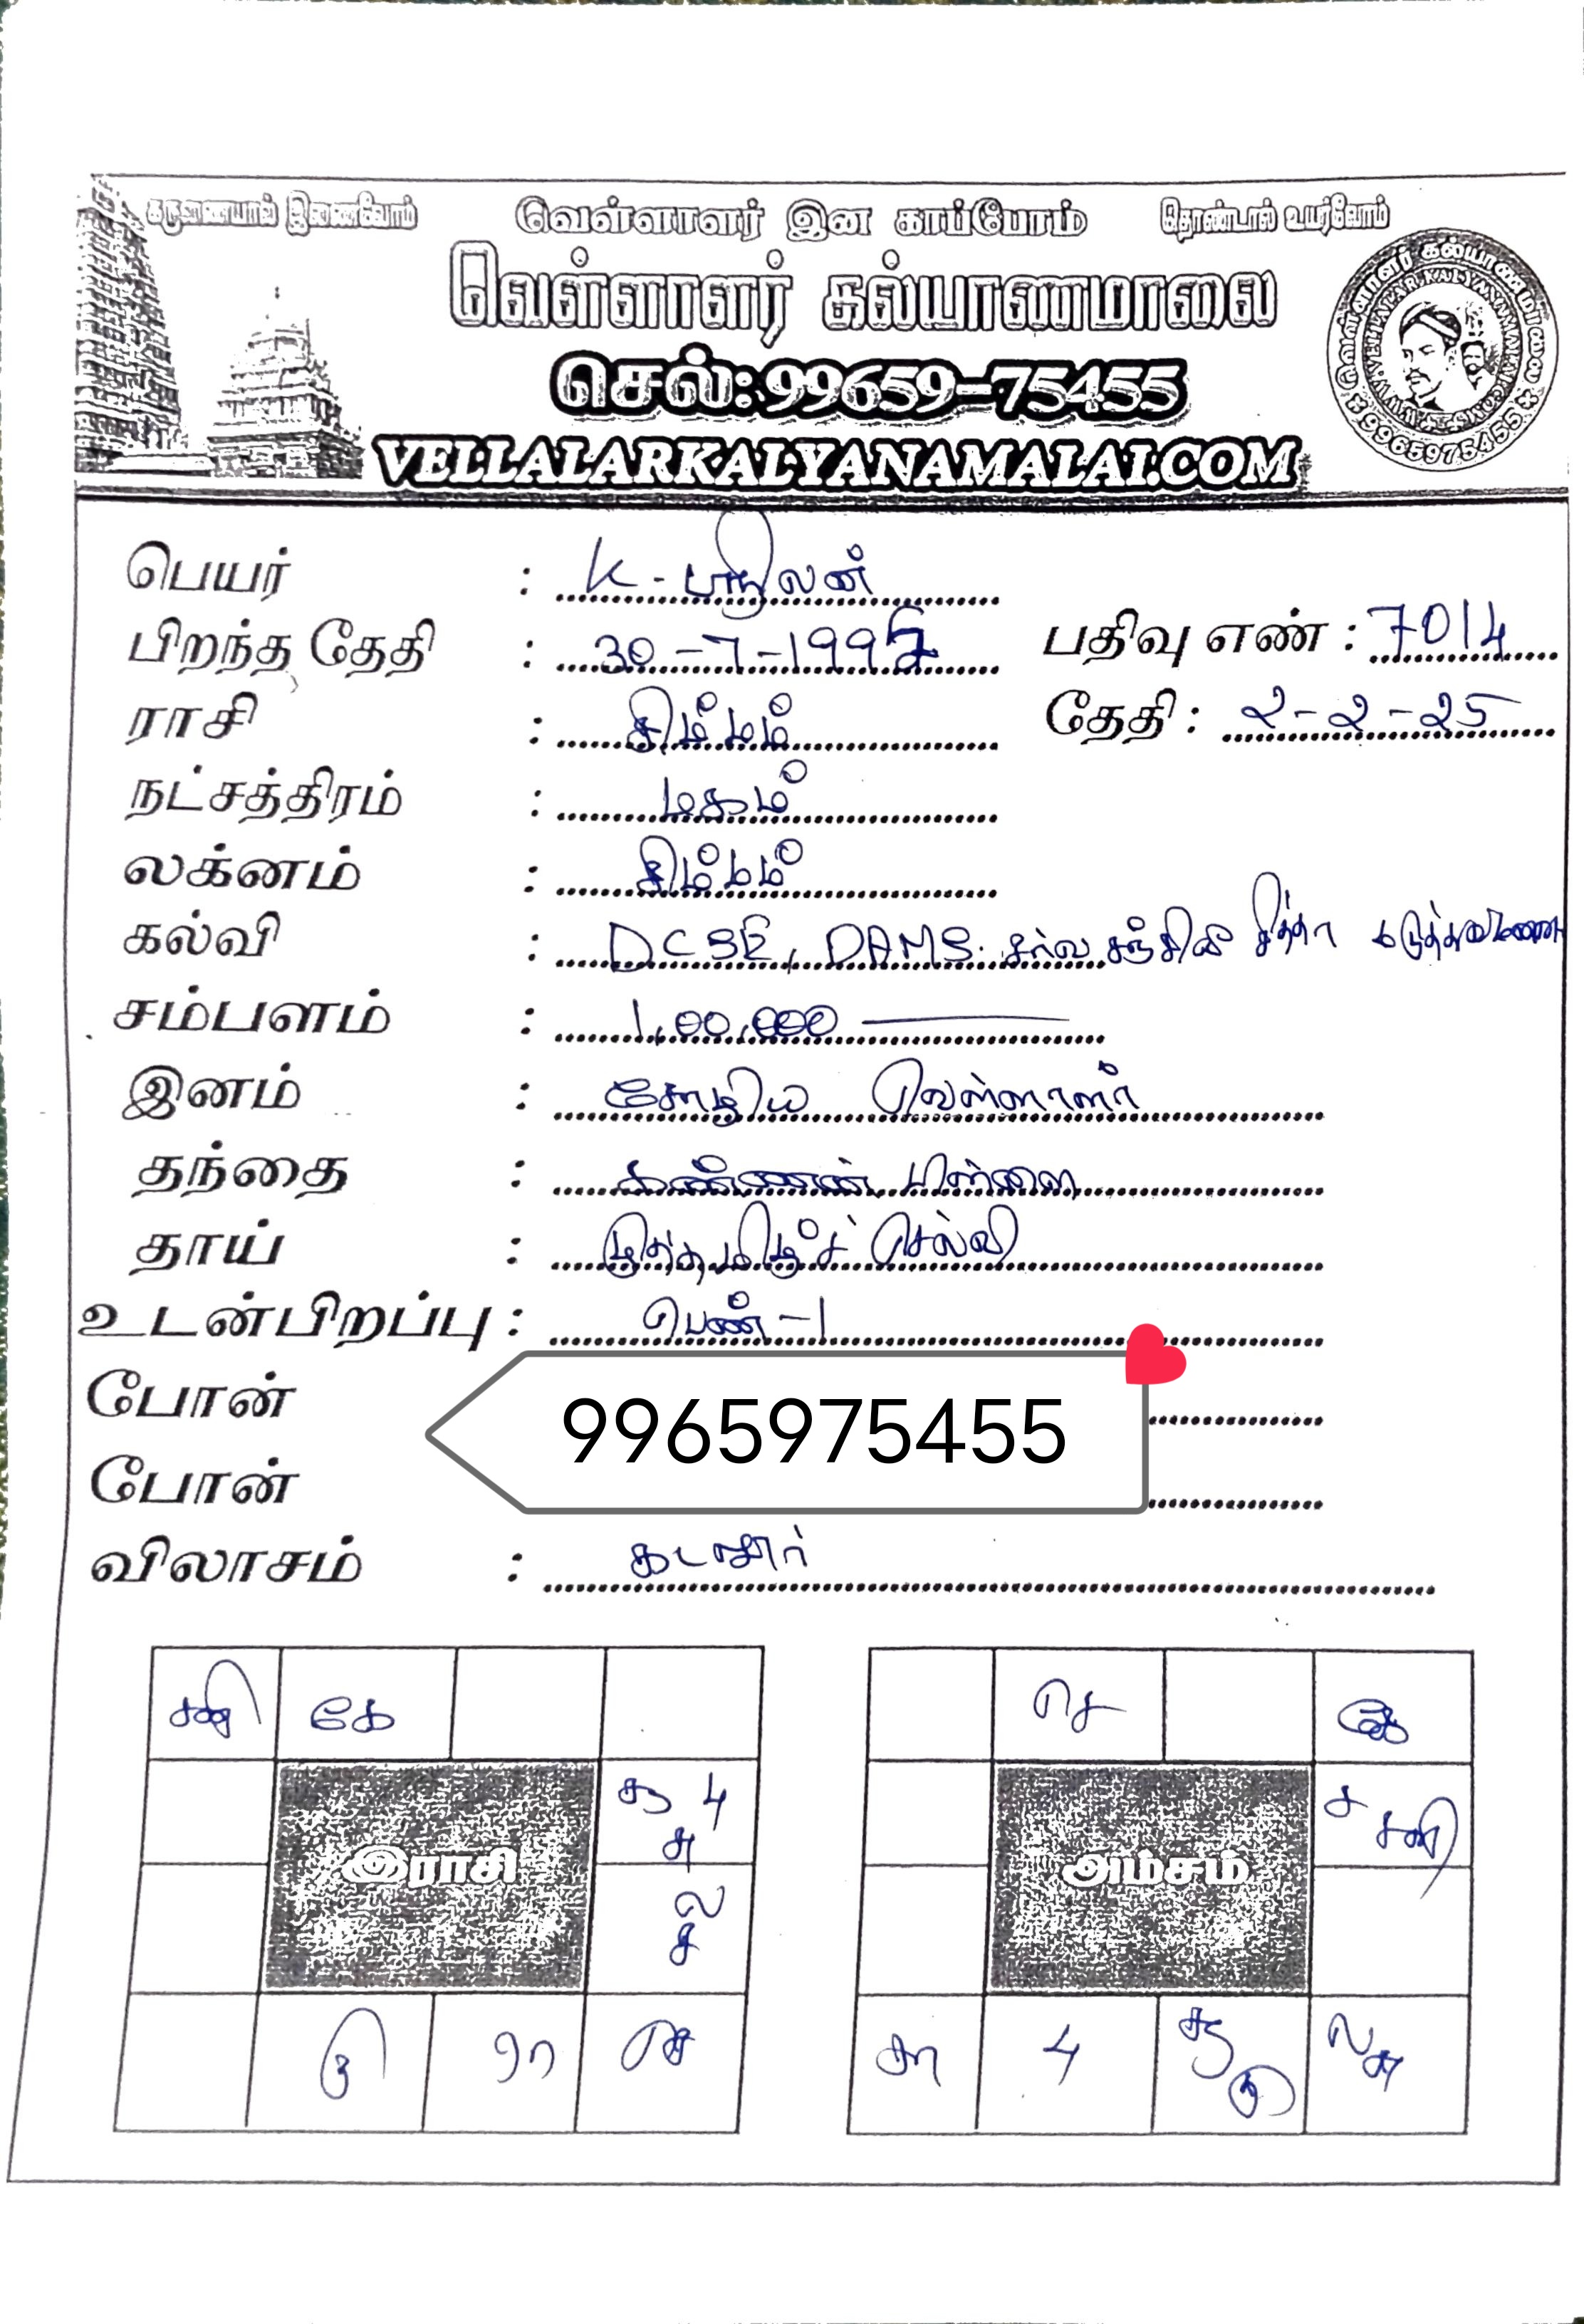 கருணையால் இணைவோம் வெள்ளாளர் இன காப்போம் தொண்டால் உயர்வோம்
வெள்ளாளர் கல்யாணமாலை
செல்: 99659-75455
VELLALARKALYANAMALAI.COM
வெள்ளாளர் கல்யாணமாலை
WWW.VELLALARKALYANAMALAI.COM
9965975455
பெயர் : K - பாரிலன்
பிறந்த தேதி : 30-7-1995 பதிவு எண் : 7014
ராசி : சிம்மம் தேதி : 2-2-25
நட்சத்திரம் : மகம்
லக்னம் : சிம்மம்
கல்வி : DCSE, DAMS. சர்வ சித்தா மருத்துவமனை
சம்பளம் : 1,00,000
இனம் : சோழிய வெள்ளாளர்
தந்தை : கண்ணன் பிள்ளை
தாய் : முத்தமிழ்ச் செல்வி
உடன்பிறப்பு : பெண் -1
போன் 9965975455
போன்
விலாசம் : கடலூர்
சனி கே
சூ பு
சு
இராசி
ல
ச
கு ரா செ
செ கே
ச சனி
அம்சம்
ரா பு சூ கு ல சு